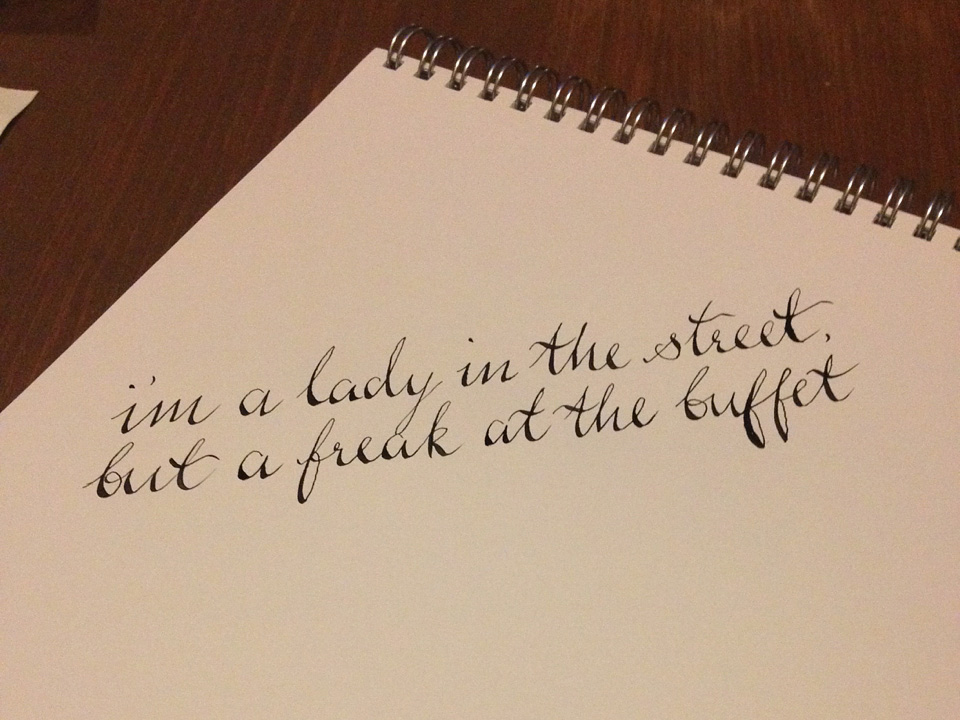 i'm a lady in the street,
but a freak at the buffet